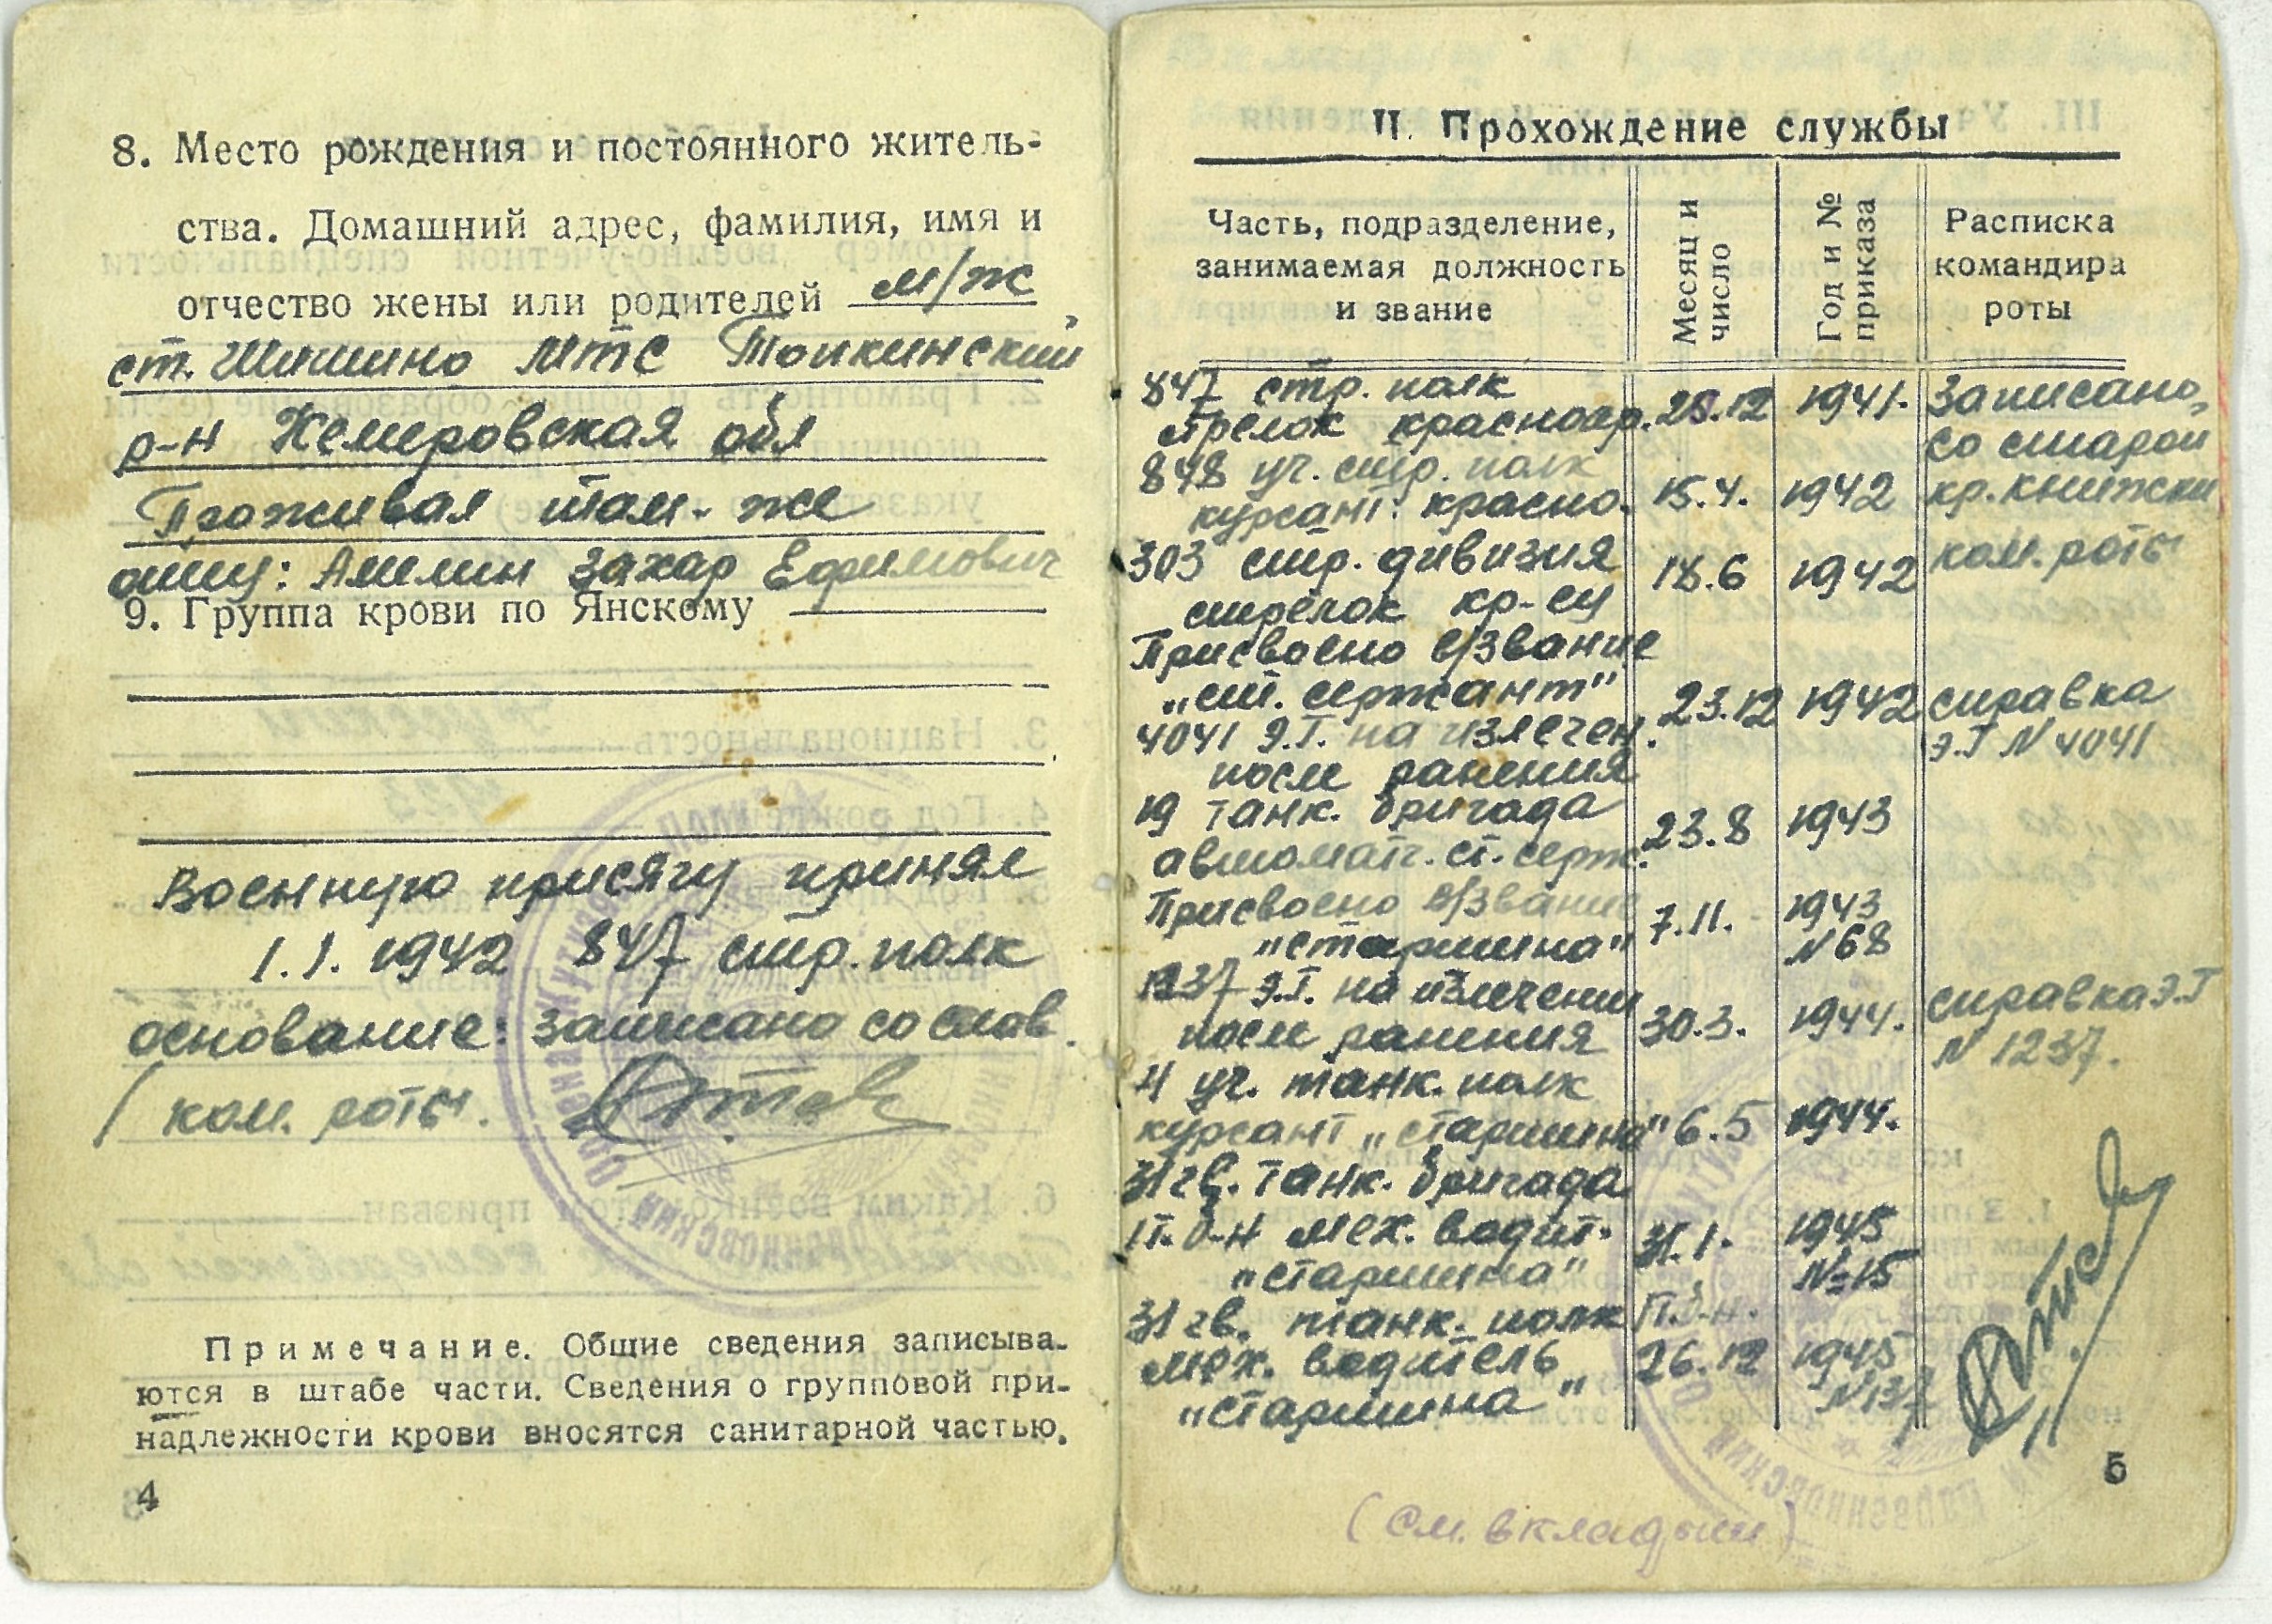 8. Место рождения и постоянного житель-
ства. Домашний адрес, фамилия, имя и
отчество жены или родителей м/ж
ст. Шишино МТС Топкинский
р-н Кемеровская обл
Проживал там-же
отец: Амелин Захар Ефимович
9. Группа крови по Янскому
Военную присягу принял
1.1. 1942 847 стр. полк
основание: записано со слов.
ком. роты.
Примечание. Общие сведения записыва-
ются в штабе части. Сведения о групповой при-
надлежности крови вносятся санитарной частью.
4
II. Прохождение службы
Часть, подразделение, занимаемая должность и звание
Месяц и число
Год и № приказа
Расписка командира роты
847 стр. полк
стрелок красноар. 25.12 1941. Записано
со старой
848 уч. стр. полк
курсант. красно. 15.4. 1942 кр. книжки
303 стр. дивизия ком. роты
стрелок кр-ец 18.6 1942
Присвоено в/звание
„ст. сержант" 23.12 1942 справка
4041 Э.Г. на излечен. Э.Г N 4041
после ранения
19 танк. бригада
автоматч. ст. серж. 23.8 1943
Присвоено в/звание
„старшина" 7.11. 1943
N 68
1237 Э.Г. на излечении
после ранения 30.3. 1944. справка Э.Г
N 1237.
4 уч. танк. полк
курсант „старшина" 6.5 1944.
31 гв. танк. бригада
П. б-н мех. водит. 31.1. 1945
„старшина" №15
31 гв. танк. полк П.б-н.
мех. водитель 26.12 1945
„старшина" N137
(см. вкладыш)
5